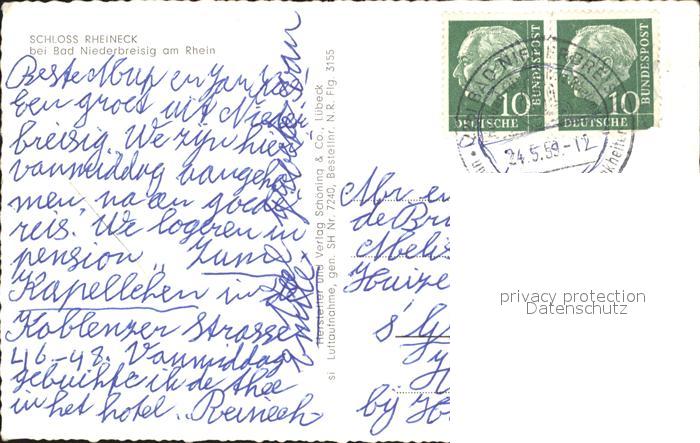 SCHLOSS RHEINECK
bei Bad Niederbreisig am Rhein
Beste Mup en Jan,
Een groet uit Nieder
breisig. We zijn hier
vanmiddag aangeko
men, na een goede
reis. We logeren in
pension "Zum
Kapellchen in de
Koblenzer Strasse
46-48. Vanmiddag
gebruikte ik de thee
in het hotel "Reineck
Hersteller und Verlag Schöning & Co., Lübeck
si Luftaufnahme, gen. SH Nr. 7240, Bestellnr. N.R. Flg. 3155
10
DEUTSCHE
BUNDESPOST
10
DEUTSCHE
BUNDESPOST
24.5.59.-12
Mr en
de Br
Melis
Huize
bij H
privacy protection
Datenschutz